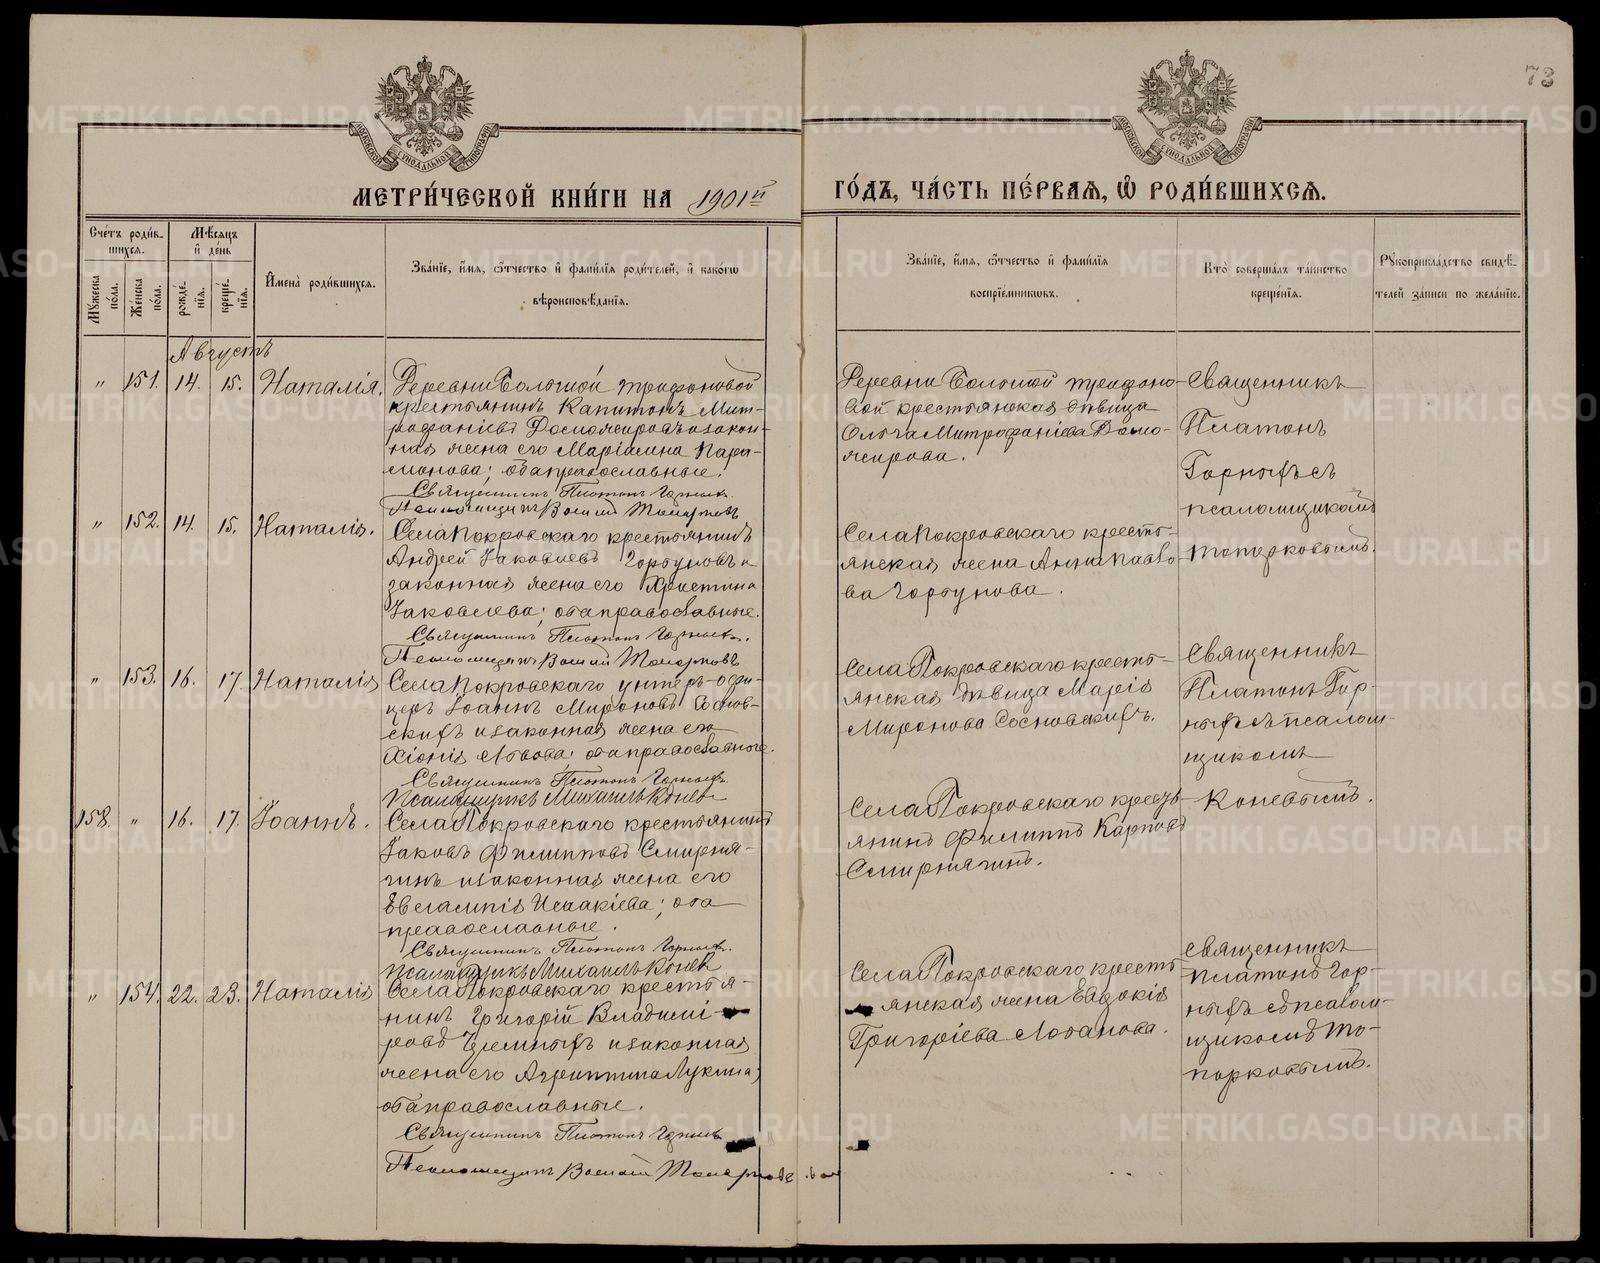 73
МЕТРИ́ЧЕСКОЙ КНИ́ГИ НА 1901й ГО́ДЪ, ЧА́СТЬ ПЕ́РВАЯ, Ѡ҆ РОДИ́ВШИХСЯ.
Сче́тъ роди́в-
шихся.
Мꙋ́жеска по́ла.
Же́нска по́ла.
Мѣ́сяцъ
и҆ де́нь
рожде́-
нїя.
креще́-
нїя.
И҆мена̀ роди́вшихся.
Зва́нїе, и҆́мя, ѻ҆́тчество и҆ фами́лїя роди́телей, и҆ како́гѡ
вѣроисповѣ́данїя.
Зва́нїе, и҆́мя, ѻ҆́тчество и҆ фами́лїя
воспрїе́мникѡвъ.
Кто̀ соверша́лъ та́инство
креще́нїя.
Рꙋкоприкла́дство свидѣ́-
телей за́писи по жела́нїю.
Августъ
" 151. 14. 15. Наталія.
Деревни Болотной Трифоновой
крестьянинъ Капитонъ Мит-
рофаніевъ Доможировъ и закон-
ная жена его Маріамна Пара-
монова; оба православные.
Священникъ Платонъ Горныхъ.
Псаломщикъ Топорковъ
Деревни Болотной Трифоно-
вой крестьянская дѣвица
Ольга Митрофаніева Домо-
жирова.
Священникъ
Платонъ
Горныхъ съ
псаломщикомъ
Топорковымъ.
" 152. 14. 15. Наталія.
Села Покровскаго крестьянинъ
Андрей Іаковлевъ Горбуновъ и
законная жена его Христина
Іаковлева; оба православные.
Священникъ Платонъ Горныхъ.
Псаломщикъ Топорковъ
Села Покровскаго кресть-
янская жена Анна Павло-
ва Горбунова.
" 153. 16. 17. Наталія
Села Покровскаго унтеръ-офи-
церъ Іоаннъ Мироновъ Соснов-
скихъ и законная жена его
Хіонія Львова; оба православные.
Священникъ Платонъ Горныхъ
Псаломщикъ Михаилъ Коневъ
Села Покровскаго кресть-
янская дѣвица Марія
Миронова Сосновскихъ.
Священникъ
Платонъ Гор-
ныхъ съ псалом-
щикомъ
Коневымъ.
158. " 16. 17. Іоаннъ.
Села Покровскаго крестьянинъ
Іаковъ Филипповъ Смирня-
гинъ и законная жена его
Евлампія Исаакіева; оба
православные.
Священникъ Платонъ Горныхъ.
Псаломщикъ Михаилъ Коневъ
Села Покровскаго кресть-
янинъ Филиппъ Карповъ
Смирнягинъ.
" 154. 22. 23. Наталія
Села Покровскаго крестья-
нинъ Григорій Владимі-
ровъ и законная
жена его Агриппина Лукина;
оба православные.
Священникъ Платонъ Горныхъ
Псаломщикъ Топорковъ
Села Покровскаго кресть-
янская жена Евдокія
Григоріева Лобанова.
Священникъ
Платонъ Гор-
ныхъ съ псалом-
щикомъ То-
порковымъ.
METRIKI.GASO-URAL.RU